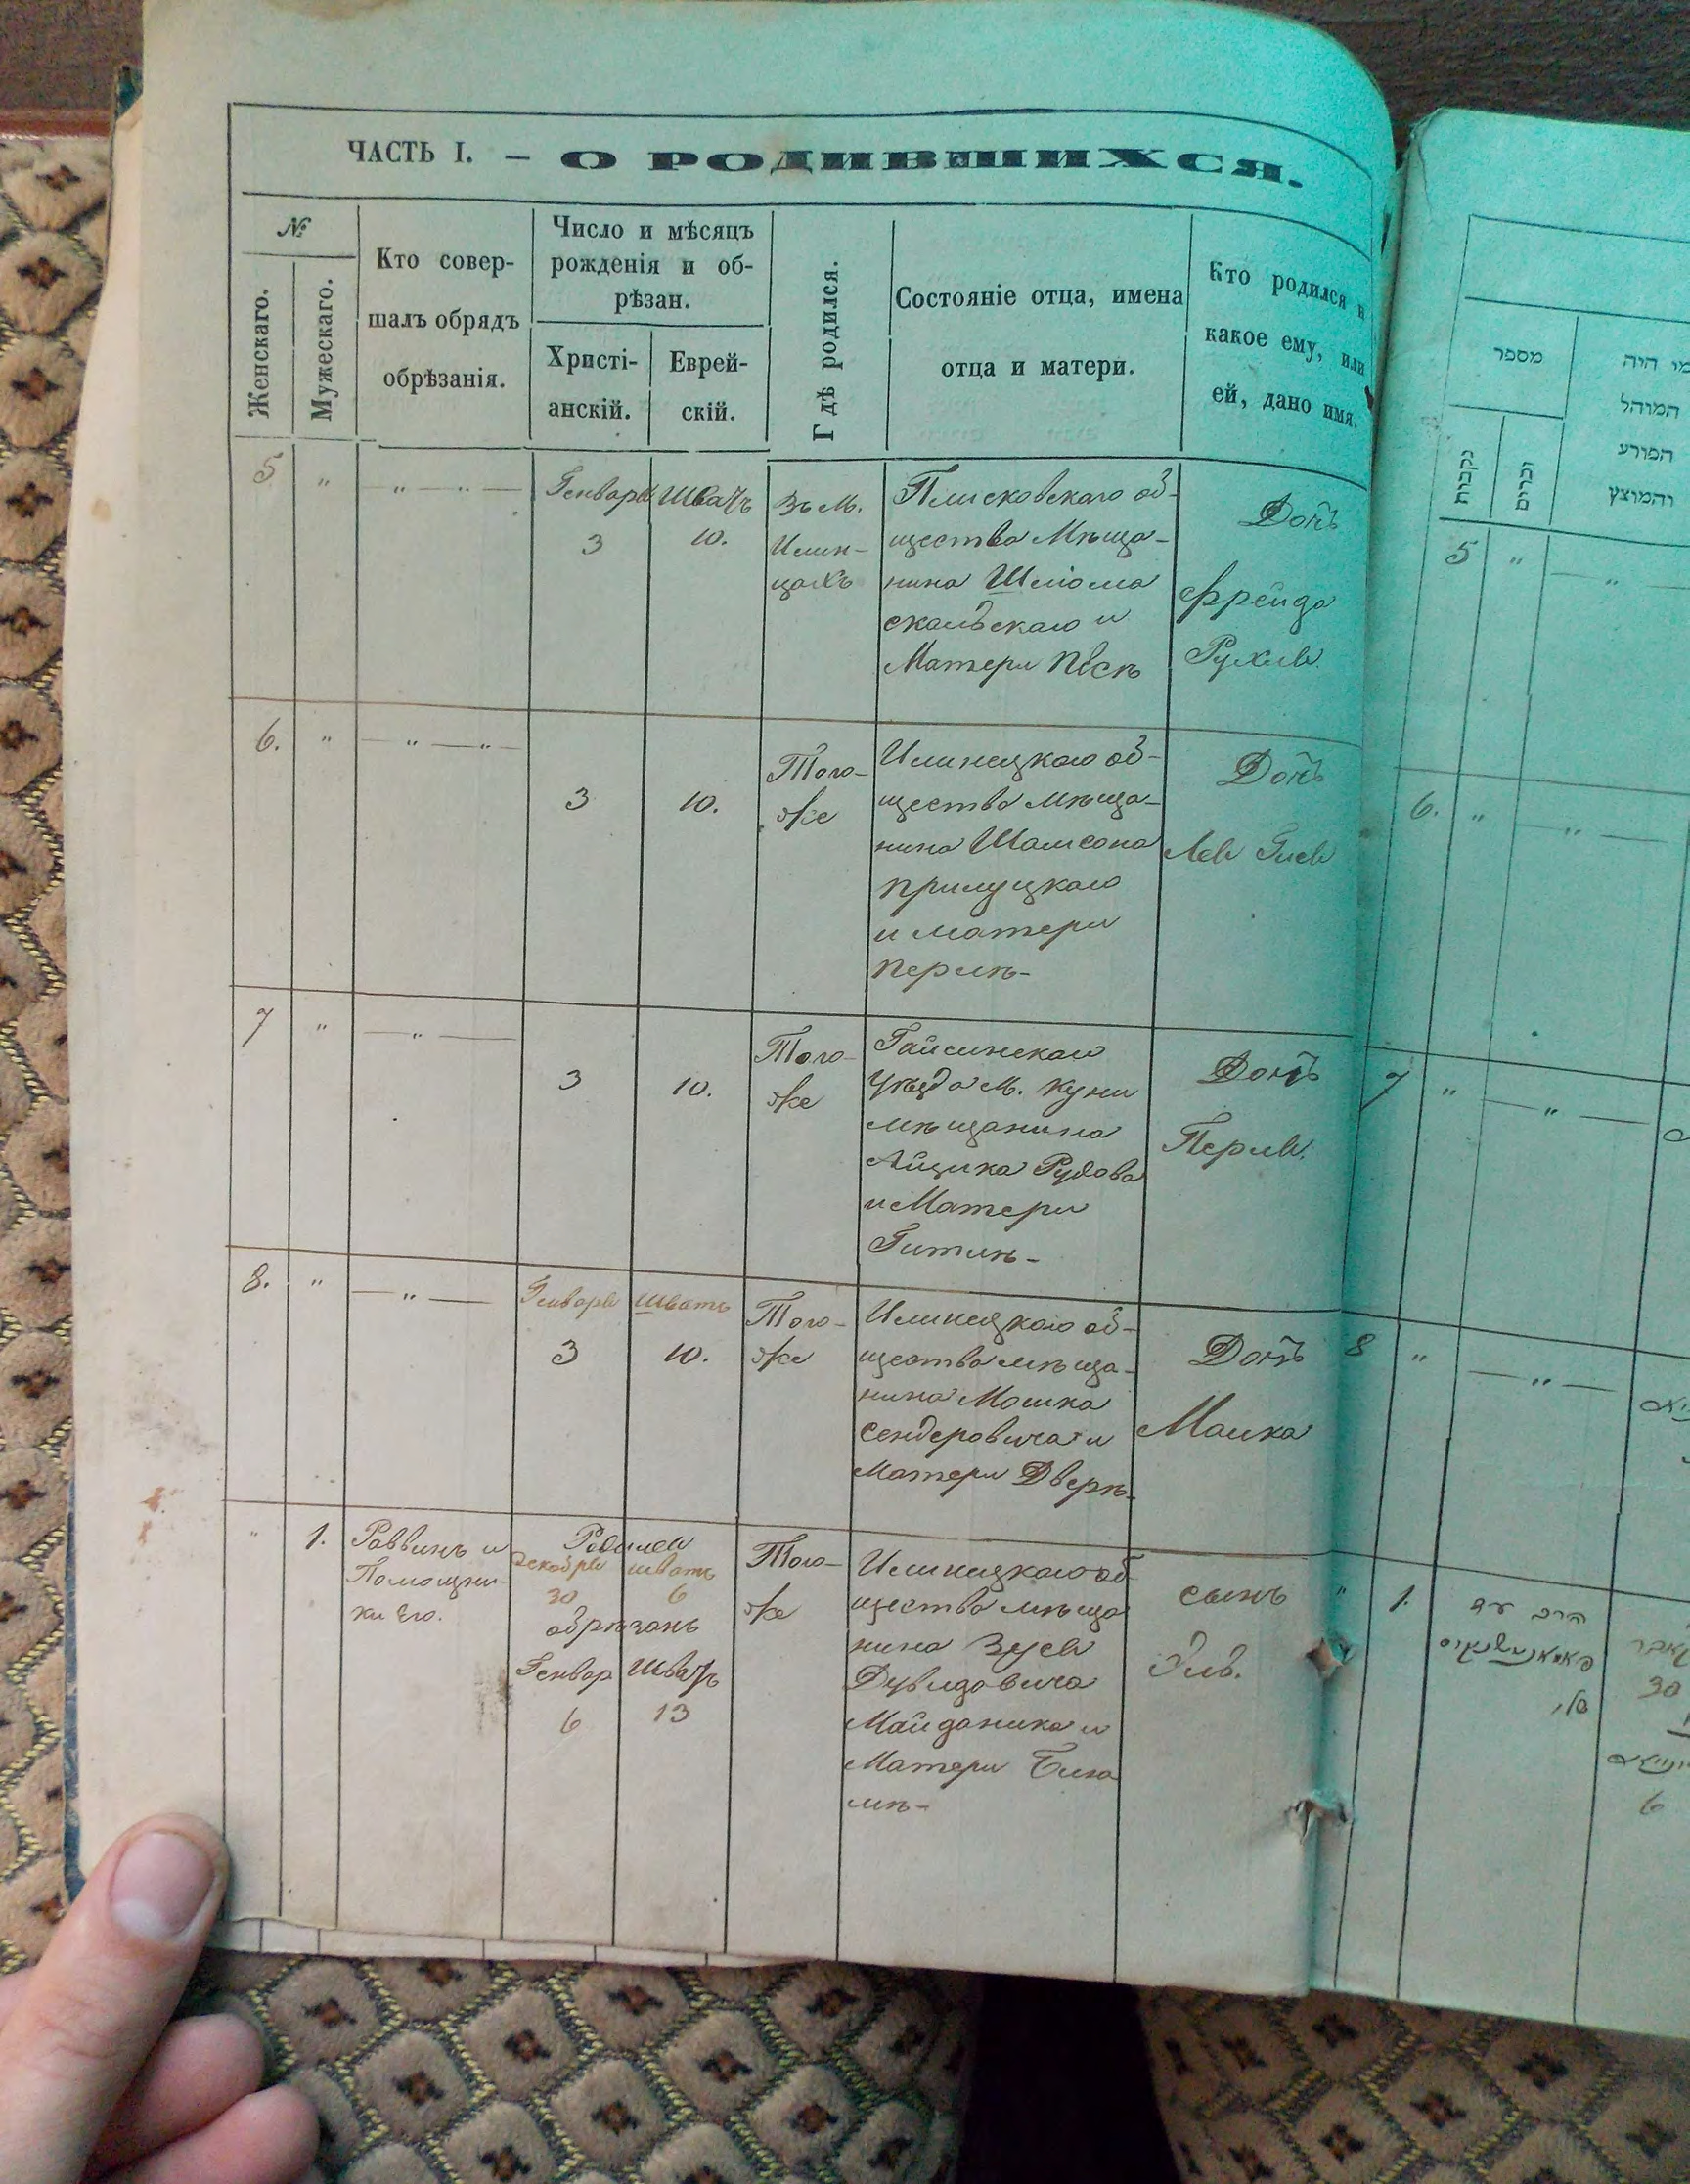 ЧАСТЬ I. — О РОДИВШИХСЯ.
№
Женскаго.
Мужескаго.
Кто совер-
шалъ обрядъ
обрѣзанія.
Число и мѣсяцъ
рожденія и об-
рѣзан.
Христі-
анскій.
Еврей-
скій.
Гдѣ родился.
Состояніе отца, имена
отца и матери.
Кто родился и
какое ему, или
ей, дано имя.
5 " — " — " —
Генваря
3
Шватъ
10.
Въ М.
Илин-
цахъ
Плисковскаго об-
щества Мѣща-
нина Шлiома
скальскаго и
Матери Песѣ
Дочь
Фрейда
Рухля.
6. " — " — " —
3
10.
Того-
же
Илинецкаго об-
щества мѣща-
нина Шамсона
прилуцкаго
и матери
перлѣ-
Дочь
7 " — " —
3
10.
Того-
же
Гайсинскаго
Уѣзда М. Куни
мѣщанина
Айцика Рудова
и Матери
Гитлѣ-
Дочь
Перля.
8. " — " —
Генваря
3
Шватъ
10.
Того-
же
Илинецкаго об-
щества мѣща-
нина Мошка
Сендеровича и
Матери Двєрѣ-
Дочь
Малка
" 1.
Раввинъ и
Помощни-
ки Его.
Родился
Декабря шватъ
30 6
обрѣзанъ
Генвар Шватъ
6 13
Того-
же
Илинецкаго об
щества мѣща
нина Зуся
Дувидовича
Майданика и
Матери
сынъ
מספר
נקבות
זכרים
מי היה
המוהל
הפורע
והמוצץ
5 " — " —
6. " — " —
7 " — " —
8 " — " —
" 1.
הרב עד
30
6